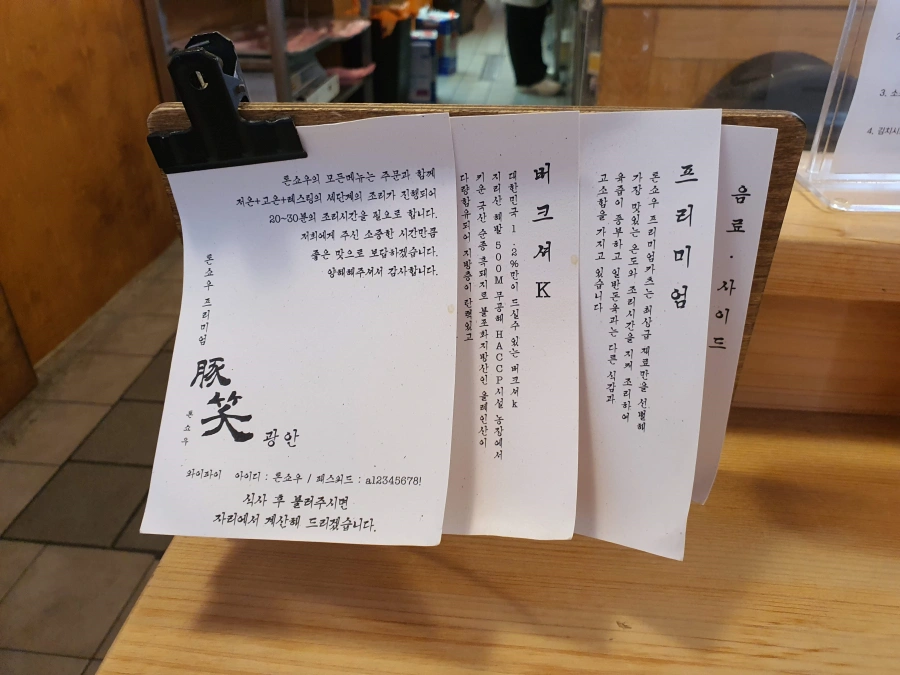 톤쇼우의 모든메뉴는 주문과 함께
저온+고온+레스팅의 세단계의 조리가 진행되어
20~30분의 조리시간을 필요로 합니다.
저희에게 주신 소중한 시간만큼
좋은 맛으로 보답하겠습니다.
양해해주셔서 감사합니다.
톤쇼우 프리미엄
豚笑
톤쇼우
광안
와이파이 아이디 : 톤쇼우 / 패스워드 : a12345678!
식사 후 불러주시면
자리에서 계산해 드리겠습니다.
버크셔K
대한민국 1.2%만이 드실수 있는 버크셔k
지리산 해발 500M 무공해 HACCP시설 농장에서
키운 국산 순종 흑돼지로 불포화지방산인 올레인산이
다량함유되어 지방층이 탄력있고
프리미엄
톤쇼우 프리미엄카츠는 최상급 재료만을 선별해
가장 맛있는 온도와 조리시간을 지켜 조리하여
육즙이 풍부하고 일반돈육과는 다른 식감과
고소함을 가지고 있습니다
음료·사이드
3. 소
4. 김치시